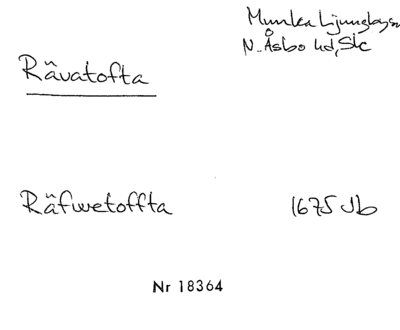 Munka Ljungby sn
N. Åsbo hd, Sk
Rävatofta
Räfwetoffta 1675 Jb
Nr 18364